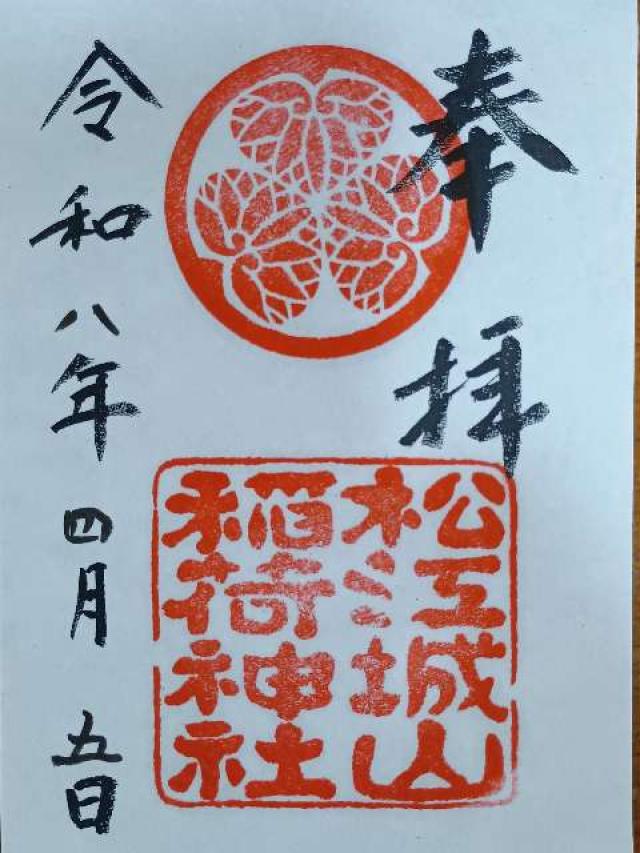 奉拝
松江城山
稲荷神社
令和八年四月五日